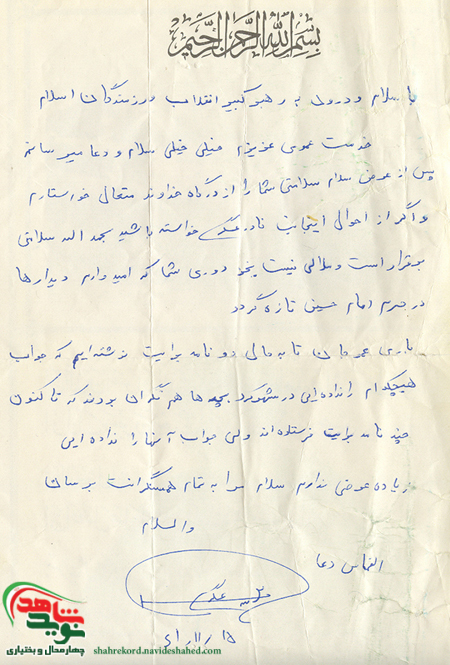 بسم الله الرحمن الرحیم
با سلام و درود به رهبر کبیر انقلاب و رزمندگان اسلام
خدمت عموی عزیزم خیلی خیلی سلام و دعا میرسانم
پس از عرض سلام سلامتی شما را از درگاه خداوند متعال خواستارم
و اگر از احوال اینجانب نادر عسگری خواسته باشید بحمد اله سلامتی
برقرار است و ملالی نیست بجز دوری شما که امیدوارم دیدارها
در حرم امام حسین تازه گردد
باری عمو جان تا به حالی دو نامه برایت نوشته ایم که جواب
هیچکدام را نداده ایی در شهرکرد بچه ها هم نگران بودند که تا کنون
چند نامه برایت فرستاده اند ولی جواب آنها را نداده ایی
زیاده عرضی ندارم سلام مرا به تمام همسنگرانت برسان
والسلام
التماس دعا
عسگری
۱۵
نوید شاهد
چهارمحال و بختیاری
shahrekord.navideshahed.com